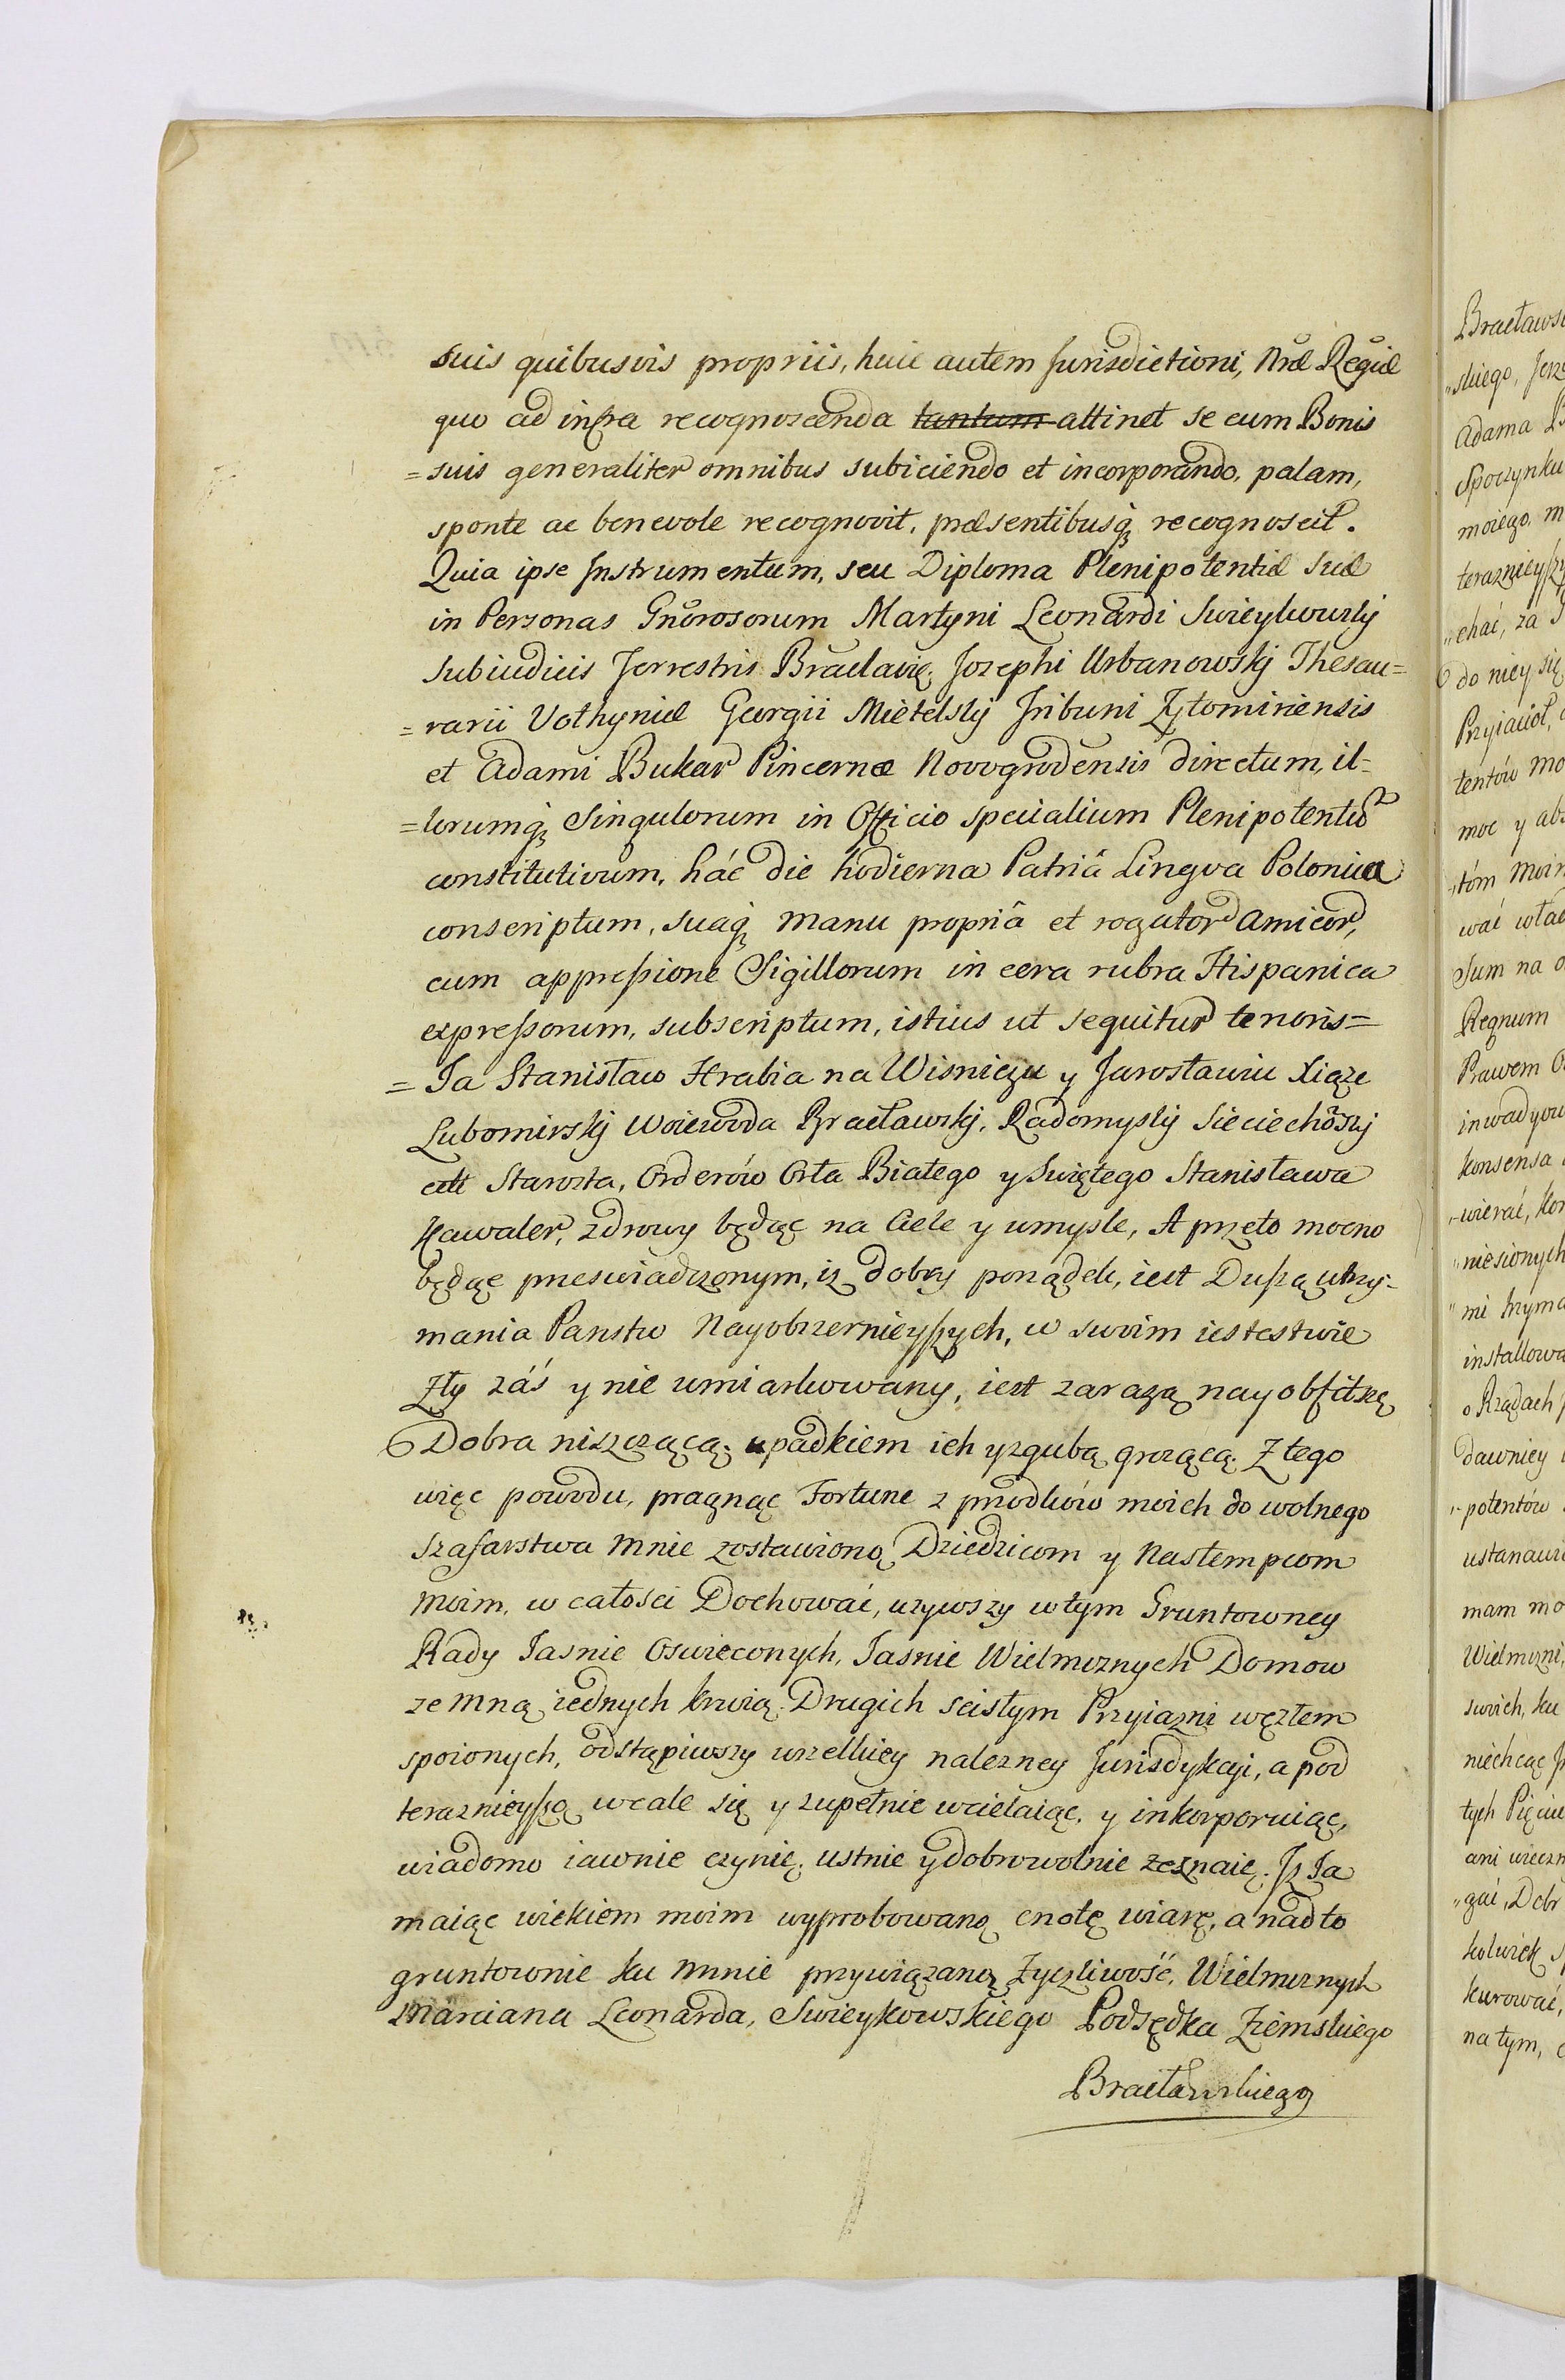 suis quibusvis propriis, huic autem Jurisdictioni, Nræ Regiæ
quo ad infra recognoscenda tantum attinet se cum Bonis
=suis generaliter omnibus subiiciendo et incorporando, palam,
sponte ac benevole recognovit, præsentibusq́ȝ recognoscit.
Quia ipse Instrumentum, seu Diploma Plenipotentiæ suæ
in Personas Gnőrosorum Martyni Leonardi Swieykowskj
Subiudicis Terrestris Braclavię, Josephi Urbanowskj Thesau=
=rarii Volhyniæ Georgii Mietelskj Tribuni Zytominiensis
et Adami Bukar Pincernæ Novogrodensis directum, il=
=lorumq́ȝ Singulorum in Officio specialium Plenipotentiő
constitutivum, hác die hodierna Patriâ Lingva Polonica
conscriptum, suaq́ȝ manu propriâ et rogator Amicor,
cum appreßione Sigillorum in cera rubra Hispanica
expreßorum, subscriptum, istius ut sequitur tenoris=
=Ja Stanisław Hrabia na Wisniczu y Jarosławiu Xiąze
Lubomirskj Woiewoda Bracławskj, Radomyslj Sieciechőskj
ett Starosta, Orderów Orła Białego y Swiętego Stanisława
Kawaler, zdrowy będąc na Ciele y umysle, A przeto mocno
będąc przeswiadczonym, iz dobry porządek, iest Duszą utrzy-
mania Panstw Nayobszernieyszych, w swoim iestestwie
Zły záś y nie umiarkowany, iest zarazą nayobfitszę
Dobra niszczącą, upadkiem ich y zgubą grozącą. Z tego
więc powodu, pragnąc Fortune z przodków moich do wolnego
szafarstwa mnie zostawioną Dziedzicom y Nastempcom
moim, w całości Dochować, uzywszy w tym Gruntowney
Rady Jasnie Oswieconych, Jasnie Wielmoznych Domow
ze mną iednych krwią. Drugich scisłym Przyiazni węzłem
spoionych, odstąpiwszy wszelkiey nalezney Jurisdykcyi, a pod
teraznieyszą wcale się y zupełnie wcielaiąc, y inkorporuiąc,
wiadomo iawnie czynię, ustnie y dobrowolnie zeznaię. Iz Ja
maiąc wiekiem moim wyprobowaną cnotę wiarę, a nadto
gruntownie ku mnie przywiązaną Zyczliwość, Wielmoznych
Marciana Leonarda, Swieykowskiego Podsędka Ziemskiego
Bracławskiego
Bracławs
„skiego, Jerz
Adama B
Spoczynku
moiego, m
teraznieyszy
„chać, za
do niey się
Przyiaciół,
tentów mo
moc y abs
„tóm moim
wać wład
sum na o
Regnum
Prawem
inwadyow
konsensa
„wierać, kon
„niesionych
„mi trzyma
installowa
o Rządach
dawniey
„potentów
ustanawi
mam mo
Wielmozni,
swoich, ku
niechcąc
tych Pięciu
ani wieczn
„gać, Dobr
kolwiek
kurować,
na tym,